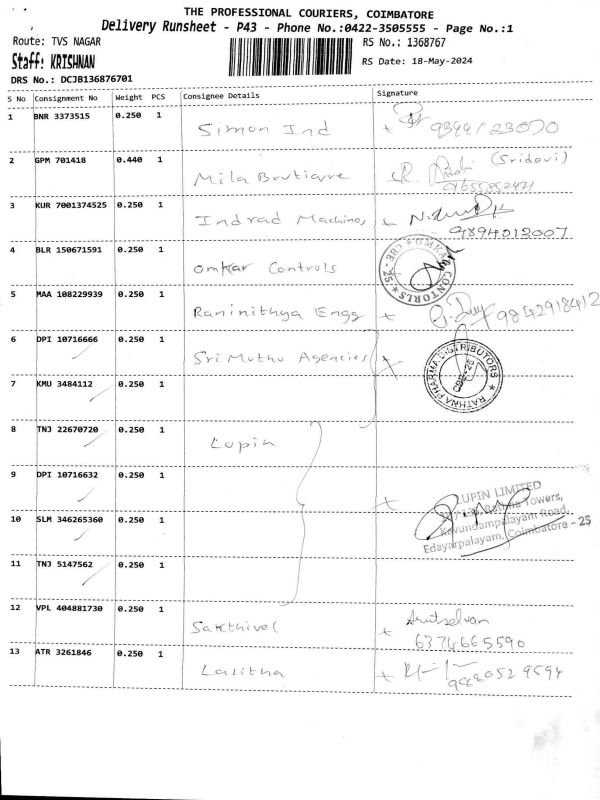 THE PROFESSIONAL COURIERS, COIMBATORE
Delivery Runsheet - P43 - Phone No.:0422-3505555 - Page No.:1
Route: TVS NAGAR RS No.: 1368767
Staff: KRISHNAN RS Date: 18-May-2024
DRS No.: DCJB136876701
S No Consignment No Weight PCS Consignee Details Signature
1 BNR 3373515 0.250 1 Simon Ind
2 GPM 701418 0.440 1 Mila Boutique (Sridevi)
3 KUR 7001374525 0.250 1 Indrad Machines
9894013007
4 BLR 150671591 0.250 1 Omkar Controls OMKAR CONTORLS CBE - 25
5 MAA 108229939 0.250 1 Raninithya Engg 9842918412
6 DPI 10716666 0.250 1 Sri Muthu Agencies RATHNA PHARMA DISTRIBUTORS CBE-25
7 KMU 3484112 0.250 1
8 TNJ 22670720 0.250 1 Lupin
9 DPI 10716632 0.250 1
LUPIN LIMITED
Towers,
10 SLM 346265360 0.250 1 Kavundampalayam Road,
Edayarpalayam, Coimbatore - 25
11 TNJ 5147562 0.250 1
12 VPL 404881730 0.250 1 Sakthivel Arutselvan
6374665590
13 ATR 3261846 0.250 1 Lalitha